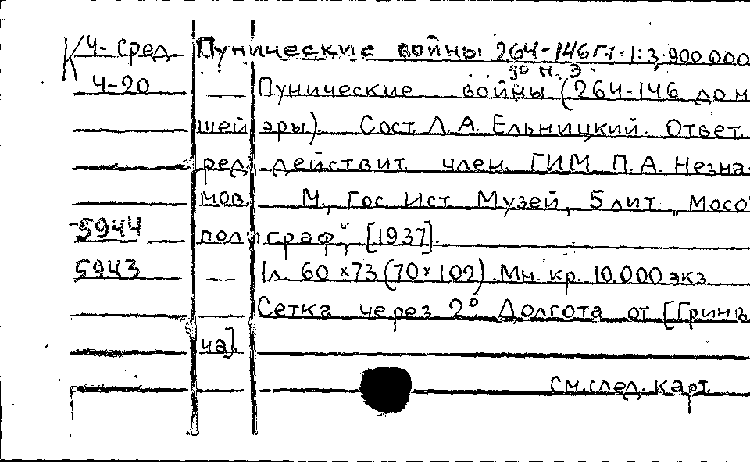 К Ч-сред Пунические войны 264-146 гг. 1:3.900.000
до н. э.
Ч-20 Пунические войны (264-146 до н
шей эры). Сост. Л.А. Ельницкий. Ответ.
ред. действит. член. ГИМ П.А. Незна-
мов. М., Гос. Ист. Музей, 5 лит. „Мосо
5944 полиграф", [1937].
5943 1 л. 60 x 73 (70 x 102). Мн. кр. 10.000 экз.
Сетка через 2° Долгота от [Гринв
ча].
См. след. карт